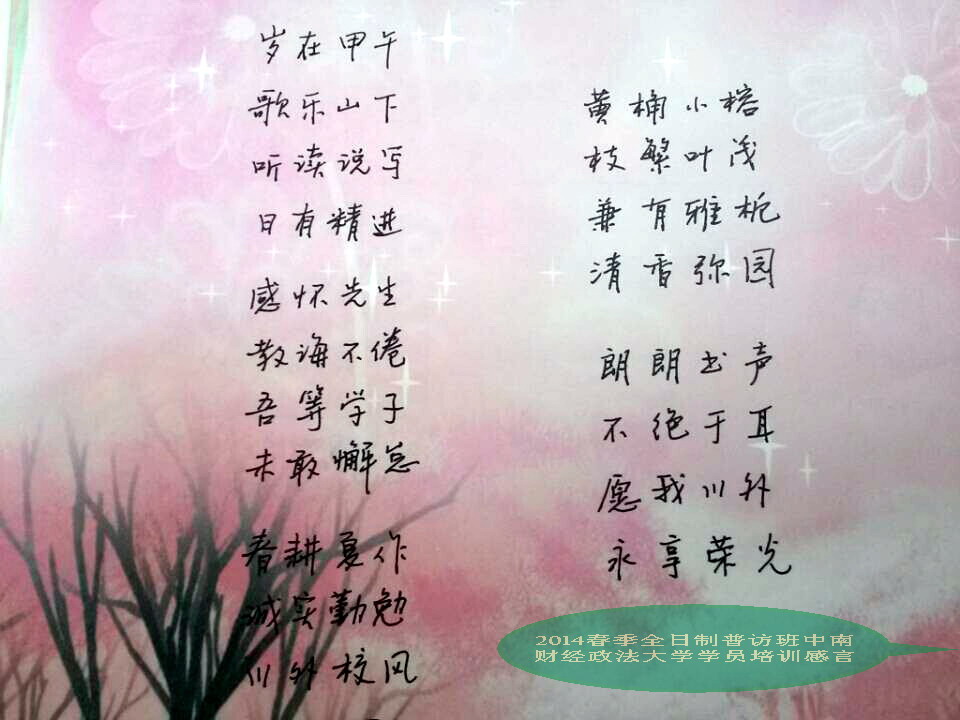 岁在甲午
歌乐山下
听读说写
日有精进
感怀先生
教诲不倦
吾等学子
未敢懈怠
春耕夏作
诚实勤勉
川外校风
黄桷小榕
枝繁叶茂
兼有雅栀
清香弥园
朗朗书声
不绝于耳
愿我川外
永享荣光
2014春季全日制普访班中南
财经政法大学学员培训感言